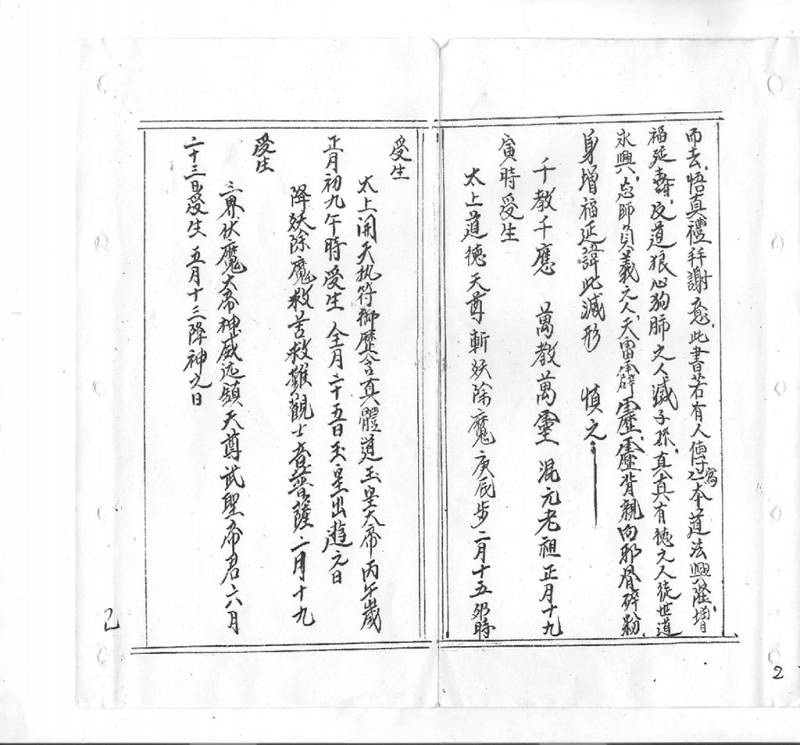 而去悟真禮拜謝意此書若有人傳寫之本道法興隆增
福延壽反道狼心狗肺之人滅子孫真真有德之人徒世道
永興忘師負義之人天雷霹靂靂背親向耶骨碎粉
身增福延諱此減形　慎之
千教千應　萬教萬靈　混元老祖正月十九
寅時受生
太上道德天尊斬妖除魔庚辰步二月十五夘時
受生
太上開天执符御歷含真體道玉皇大帝丙午歲
正月初九午時受生　仝月二十五日玉皇出遊之日
降妖除魔救苦救難觀士音菩薩二月十九
受生
三界伏魔大帝神威远鎮天尊武聖帝君六月
二十三日受生　五月十三降神之日
2
2